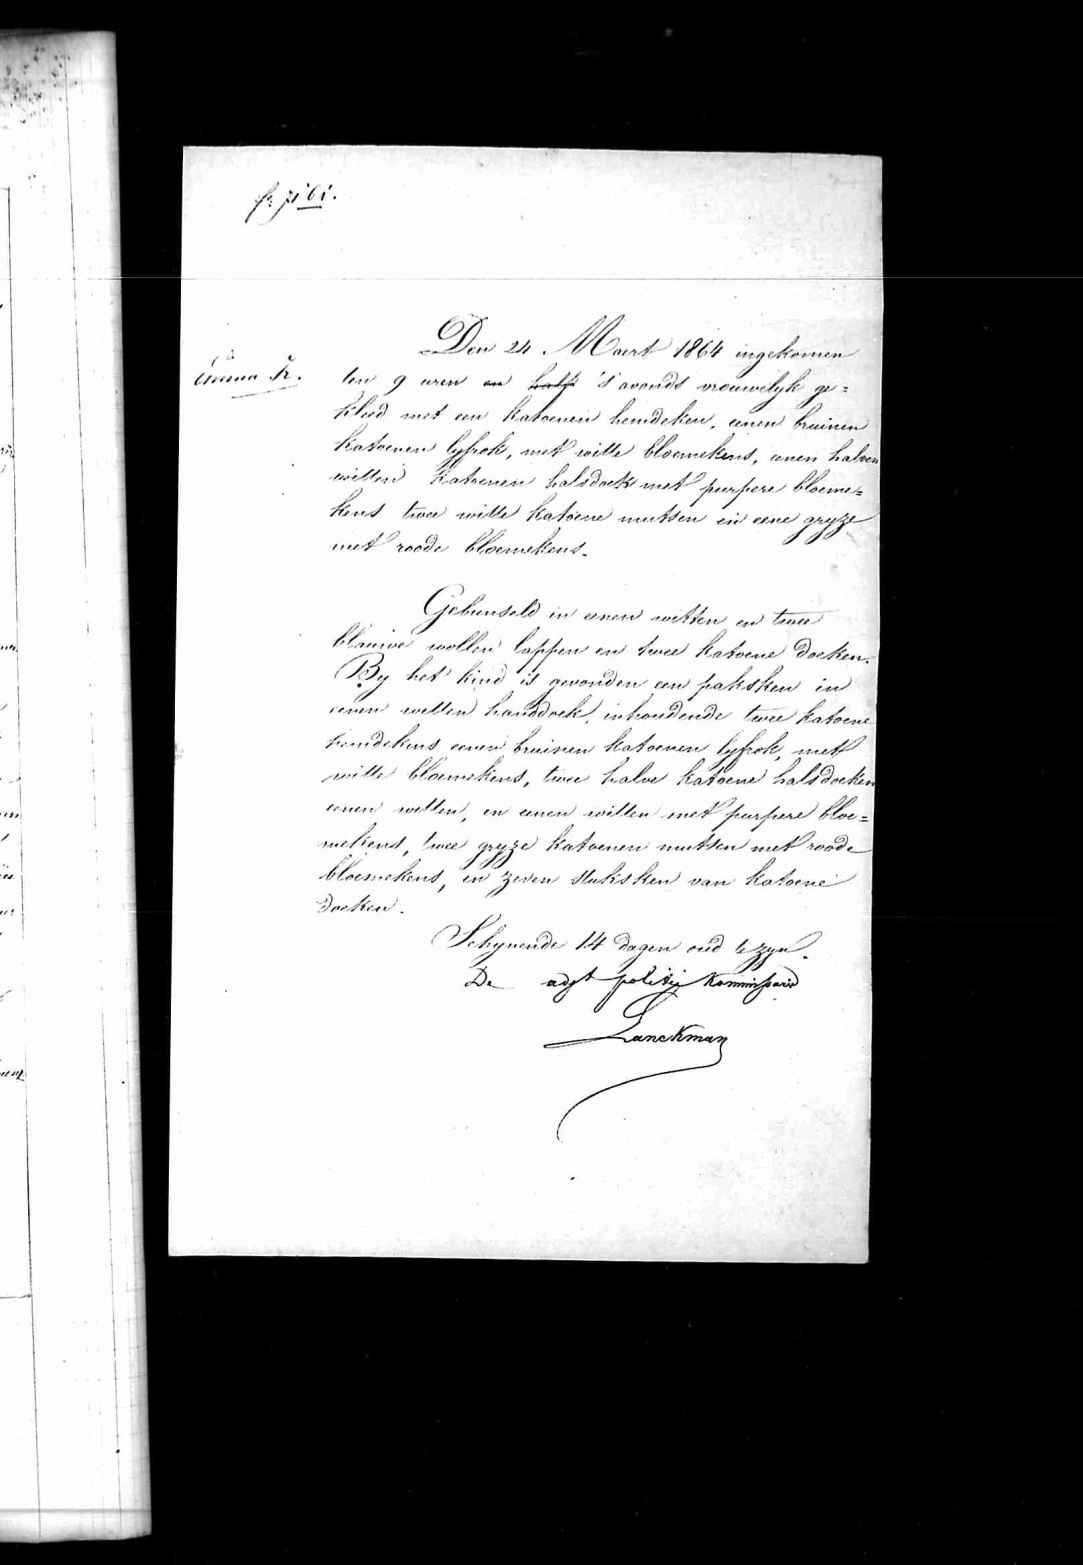 Den 24 Maert 1864 ingekomen
ten 9 uren en half 's avonds vrouwelyk ge=
kleed met een katoenen hemdeken, eenen bruinen
katoenen lyfrok, met witte bloemekens, eenen halven
witten katoenen halsdoek met purpere bloeme=
kens twee witte katoene mutsen en eene gryze
met roode bloemekens.
Gebunseld in eenen witten en twee
blauwe wollen lappen en twee katoene doeken.
By het kind is gevonden een paksken in
eenen witten handdoek, inhoudende twee katoene
hemdekens eenen bruinen katoenen lyfrok, met
witte bloemekens, twee halve katoene halsdoeken
eenen witten, en eenen witten met purpere bloe=
mekens, twee gryze katoenen mutsen met roode
bloemekens, en zeven stuksken van katoene
doeken.
Schynende 14 dagen oud te zyn.
De adgt politie kommissaris
Lanckman